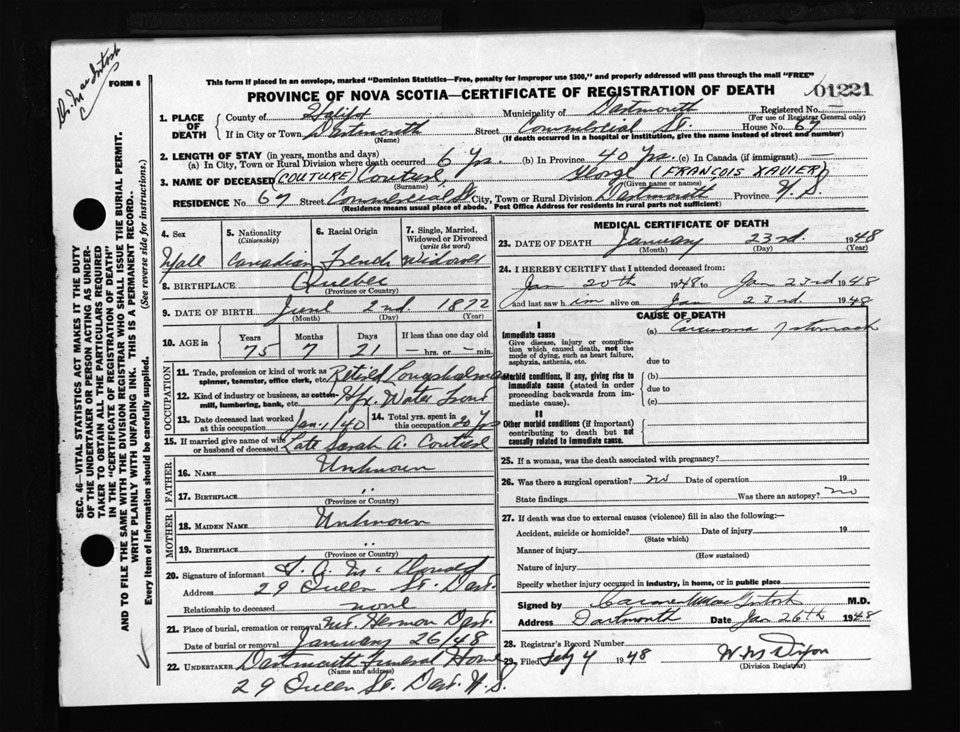 Dr. MacIntosh
FORM 6
This form if placed in an envelope, marked "Dominion Statistics—Free, penalty for improper use $300," and properly addressed will pass through the mail "FREE"
PROVINCE OF NOVA SCOTIA—CERTIFICATE OF REGISTRATION OF DEATH
01221
1. PLACE OF DEATH
County of Halifx Municipality of Dartmouth Registered No.
(For use of Registrar General only)
If in City or Town Dartmouth Street Commercial St. House No. 67
(Name) (If death occurred in a hospital or institution, give the name instead of street and number)
2. LENGTH OF STAY (in years, months and days)
(a) In City, Town or Rural Division where death occurred 6 Yrs. (b) In Province 40 Yrs. (c) In Canada (if immigrant) —
3. NAME OF DECEASED (COUTURE) Couture George (FRANÇOIS XAVIER)
(Surname) (Given name or names)
RESIDENCE No. 67 Street Commercial St City, Town or Rural Division Dartmouth Province N.S
(Residence means usual place of abode. Post Office Address for residents in rural parts not sufficient)
4. Sex
Male
5. Nationality
(Citizenship)
Canadian
6. Racial Origin
French
7. Single, Married, Widowed or Divorced
(write the word)
Widower
8. BIRTHPLACE Quebec
(Province or Country)
9. DATE OF BIRTH June 2nd. 1872
(Month) (Day) (Year)
10. AGE in Years Months Days If less than one day old
75 7 21 — hrs. or — min.
OCCUPATION
11. Trade, profession or kind of work as spinner, teamster, office clerk, etc. Retired Longshoreman
12. Kind of industry or business, as cotton-mill, lumbering, bank, etc. Hfx. Water Front
13. Date deceased last worked at this occupation Jan. 1/40
14. Total yrs. spent in this occupation 20 Yrs
15. If married give name of wife or husband of deceased Late Sarah A. Couture
FATHER
16. NAME Unknown
17. BIRTHPLACE ..
(Province or Country)
MOTHER
18. MAIDEN NAME Unknown
19. BIRTHPLACE ..
(Province or Country)
20. Signature of informant Mc Donald
Address 29 Queen St. Dart.
Relationship to deceased none
21. Place of burial, cremation or removal Mt. Hermon Dart.
Date of burial or removal January 26/48
22. UNDERTAKER Dartmouth Funeral Home
(Name and address)
29 Queen St. Dart. N.S.
MEDICAL CERTIFICATE OF DEATH
23. DATE OF DEATH January 23rd. 1948
(Month) (Day)
24. I HEREBY CERTIFY that I attended deceased from:
Jan 20th 1948 to Jan 23rd 1948
and last saw h im alive on Jan 23rd 1948
CAUSE OF DEATH
I
Immediate cause
Give disease, injury or complication which caused death, not the mode of dying, such as heart failure, asphyxia, asthenia, etc.
(a) Carcinoma of stomach
due to
Morbid conditions, if any, giving rise to immediate cause (stated in order proceeding backwards from immediate cause).
(b)
due to
(c)
II
Other morbid conditions (if important) contributing to death but not causally related to immediate cause.
25. If a woman, was the death associated with pregnancy?
26. Was there a surgical operation? no Date of operation 19
State findings Was there an autopsy? no
27. If death was due to external causes (violence) fill in also the following:—
Accident, suicide or homicide? Date of injury 19
(State which)
Manner of injury
(How sustained)
Nature of injury
Specify whether injury occured in industry, in home, or in public place
Signed by MacIntosh M.D.
Address Dartmouth Date Jan 26th 1948
28. Registrar's Record Number
29. Filed 4 1948 W M Dixon
(Division Registrar)
SEC. 46—VITAL STATISTICS ACT MAKES IT THE DUTY
OF THE UNDERTAKER OR PERSON ACTING AS UNDER-
TAKER TO OBTAIN ALL THE PARTICULARS REQUIRED
IN THE "CERTIFICATE OF REGISTRATION OF DEATH"
AND TO FILE THE SAME WITH THE DIVISION REGISTRAR WHO SHALL ISSUE THE BURIAL PERMIT.
WRITE PLAINLY WITH UNFADING INK. THIS IS A PERMANENT RECORD.
Every item of Information should be carefully supplied. (See reverse side for instructions.)